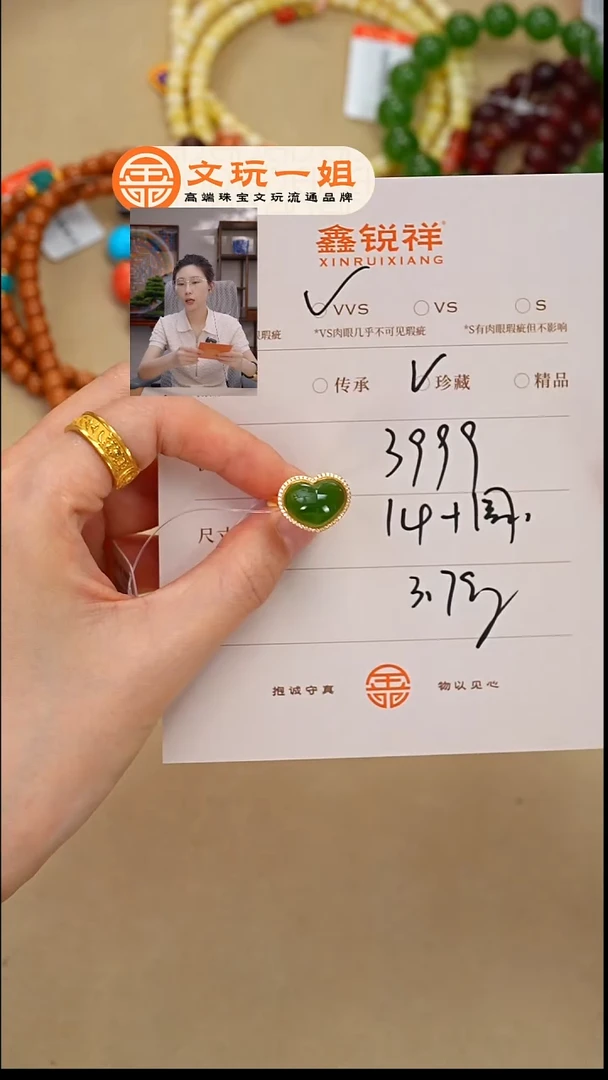 文玩一姐
高端珠宝文玩流通品牌
鑫锐祥
XINRUIXIANG
VVS VS S
瑕疵 *VS肉眼几乎不可见瑕疵 *S有肉眼瑕疵但不影响
传承 珍藏 精品
3999
尺寸 14+1周.
3.79g
抱诚守真 物以见心